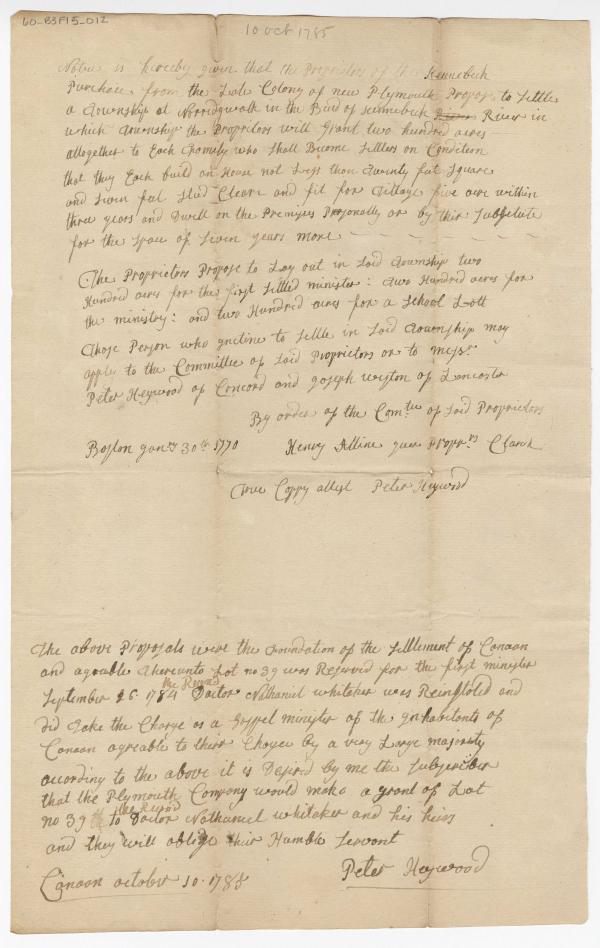 60-B3F15-012
10 oct 1785
Notice is hereby given that the Proprietors of the Kennebeck
Purchase from the Late Colony of new Plymouth Propose to Settle
a township at Norridgwalk in the Bend of Kennebeck River River in
which township the Propritors will Grant two hundred acres
altogether to Each Family who Shall Become Setlers on Condition
that they Each build an House not Less than Twenty feet Square
and Seven feet Stud Cleare and fit for Tillage five acre within
three years and Dwell on the Premises Personally or by their Substetute
for the Space of Seven years more
The Proprietors Propose to Lay out in Said township two
Hundred acres for the first Setled minister: two Hundred acres for
the ministry: and two Hundred acres for a School Lott
those Person who incline to Settle in Said township may
apply to the Committee of Said Proprietors or to messrs
Peter Heywood of Concord and Joseph weston of Lancaster
By order of the Comtee of Said Proprietors
Boston janry 30th 1770 Henry Alline juer Proprrs Clarck
True Coppy attest Peter Heywood
The above Proposals were the Foundation of the Settlement of Canaan
and agreable thereunto Lot no 39 was Reserved for the first minister
the Revnd
September 26 1784 Doctor Nathaniel whitaker was Reinstoled and
did Take the Charge as a Gospel minister of the inhabitants of
Canaan agreable to their Choyce by a very Large majority
according to the above it is Desired by me the Subscriber
that the Plymouth Company would make a grant of Lot
the Revnd
no 39 to Doctor Nathaniel whitaker and his heirs
and they will oblige their Humble Servant
Canaan october 10 1785 Peter Heywood